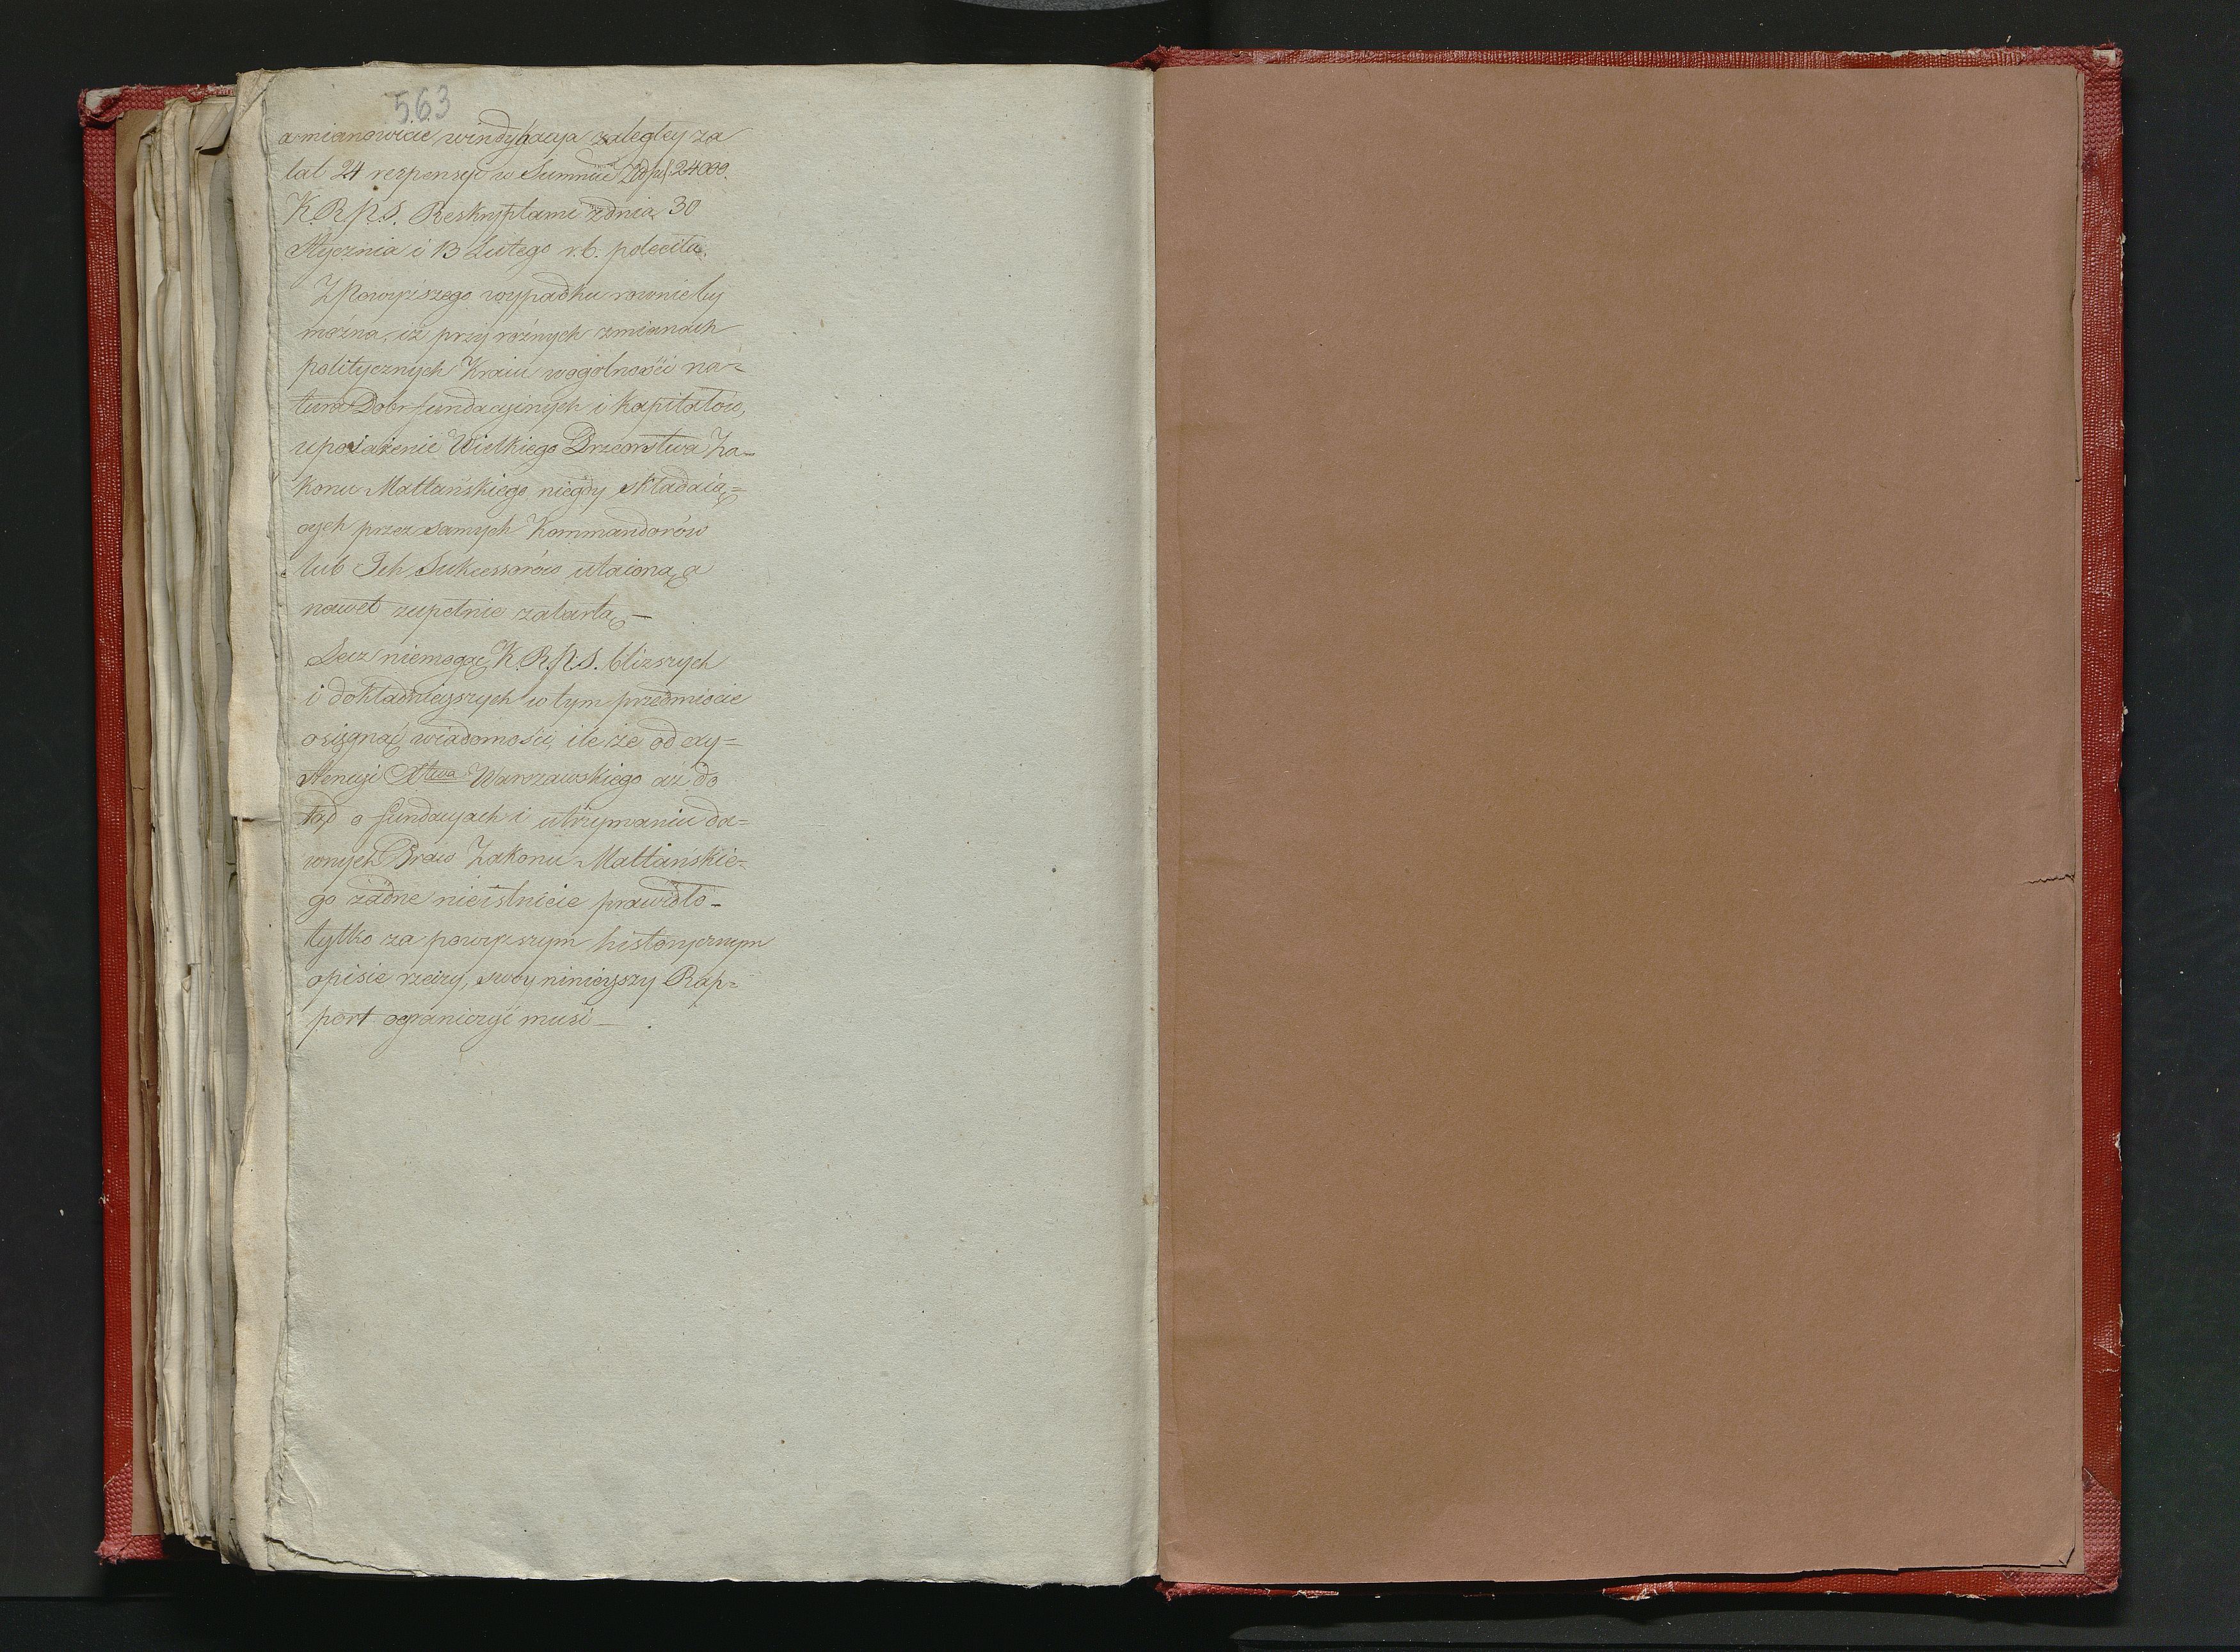 563
a mianowicie windykacya zaległey za
lat 24 respensyi w Summie Złpol. 24000.
K.R.P.S. Reskryptami zdnia 30
Stycznia i 13 Lutego r.b. poleciła.
Z Powyższego wypadku wnieby
można, iż przy rożnych zmianach
politycznych Kraiu wogólności na=
tura Dobr fundacyinych i kapitałów,
uposażenie Wielkiego Przeorstwa Za=
konu Maltańskiego niegdy składaią=
cych przez samych Kommandorów
lub Ich Sukcessorów utaioną, a
nawet zupełnie zatartą —
Lecz niemogąc K.R.P.S. bliższych
i dokładnieyszych w tym przedmiocie
osiągnąć wiadomości, ile że od exy=
stencyi Xtwa Warszawskiego aż do
tąd o fundacyach i utrzymaniu da=
wnych Praw Zakonu Maltańskie=
go żadne nieistnieie prawidło —
tylko za powyższym historycznym
opisie rzeczy, swoy ninieyszy Rap=
port ograniczyć musi —